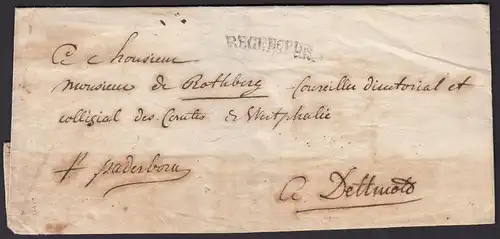 A Monsieur
monsieur de Rothberg Conseiller directorial et
collégial des Comtes de Westphalie
fr paderborn
A Dettmold